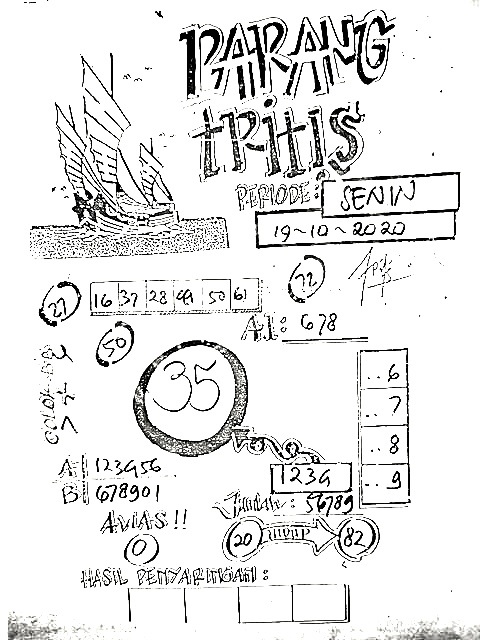 PARANG
tRitiS
PERIODE: SENIN
19~10~2020
72
27
16 37 28 49 50 61
AI: 678
50
35
.. 6
.. 7
.. 8
.. 9
A 123456
B 678901
1234
Jumlah: 56789
AWAS!!
0
20 HIDUP 82
HASIL PENYARINGAN: